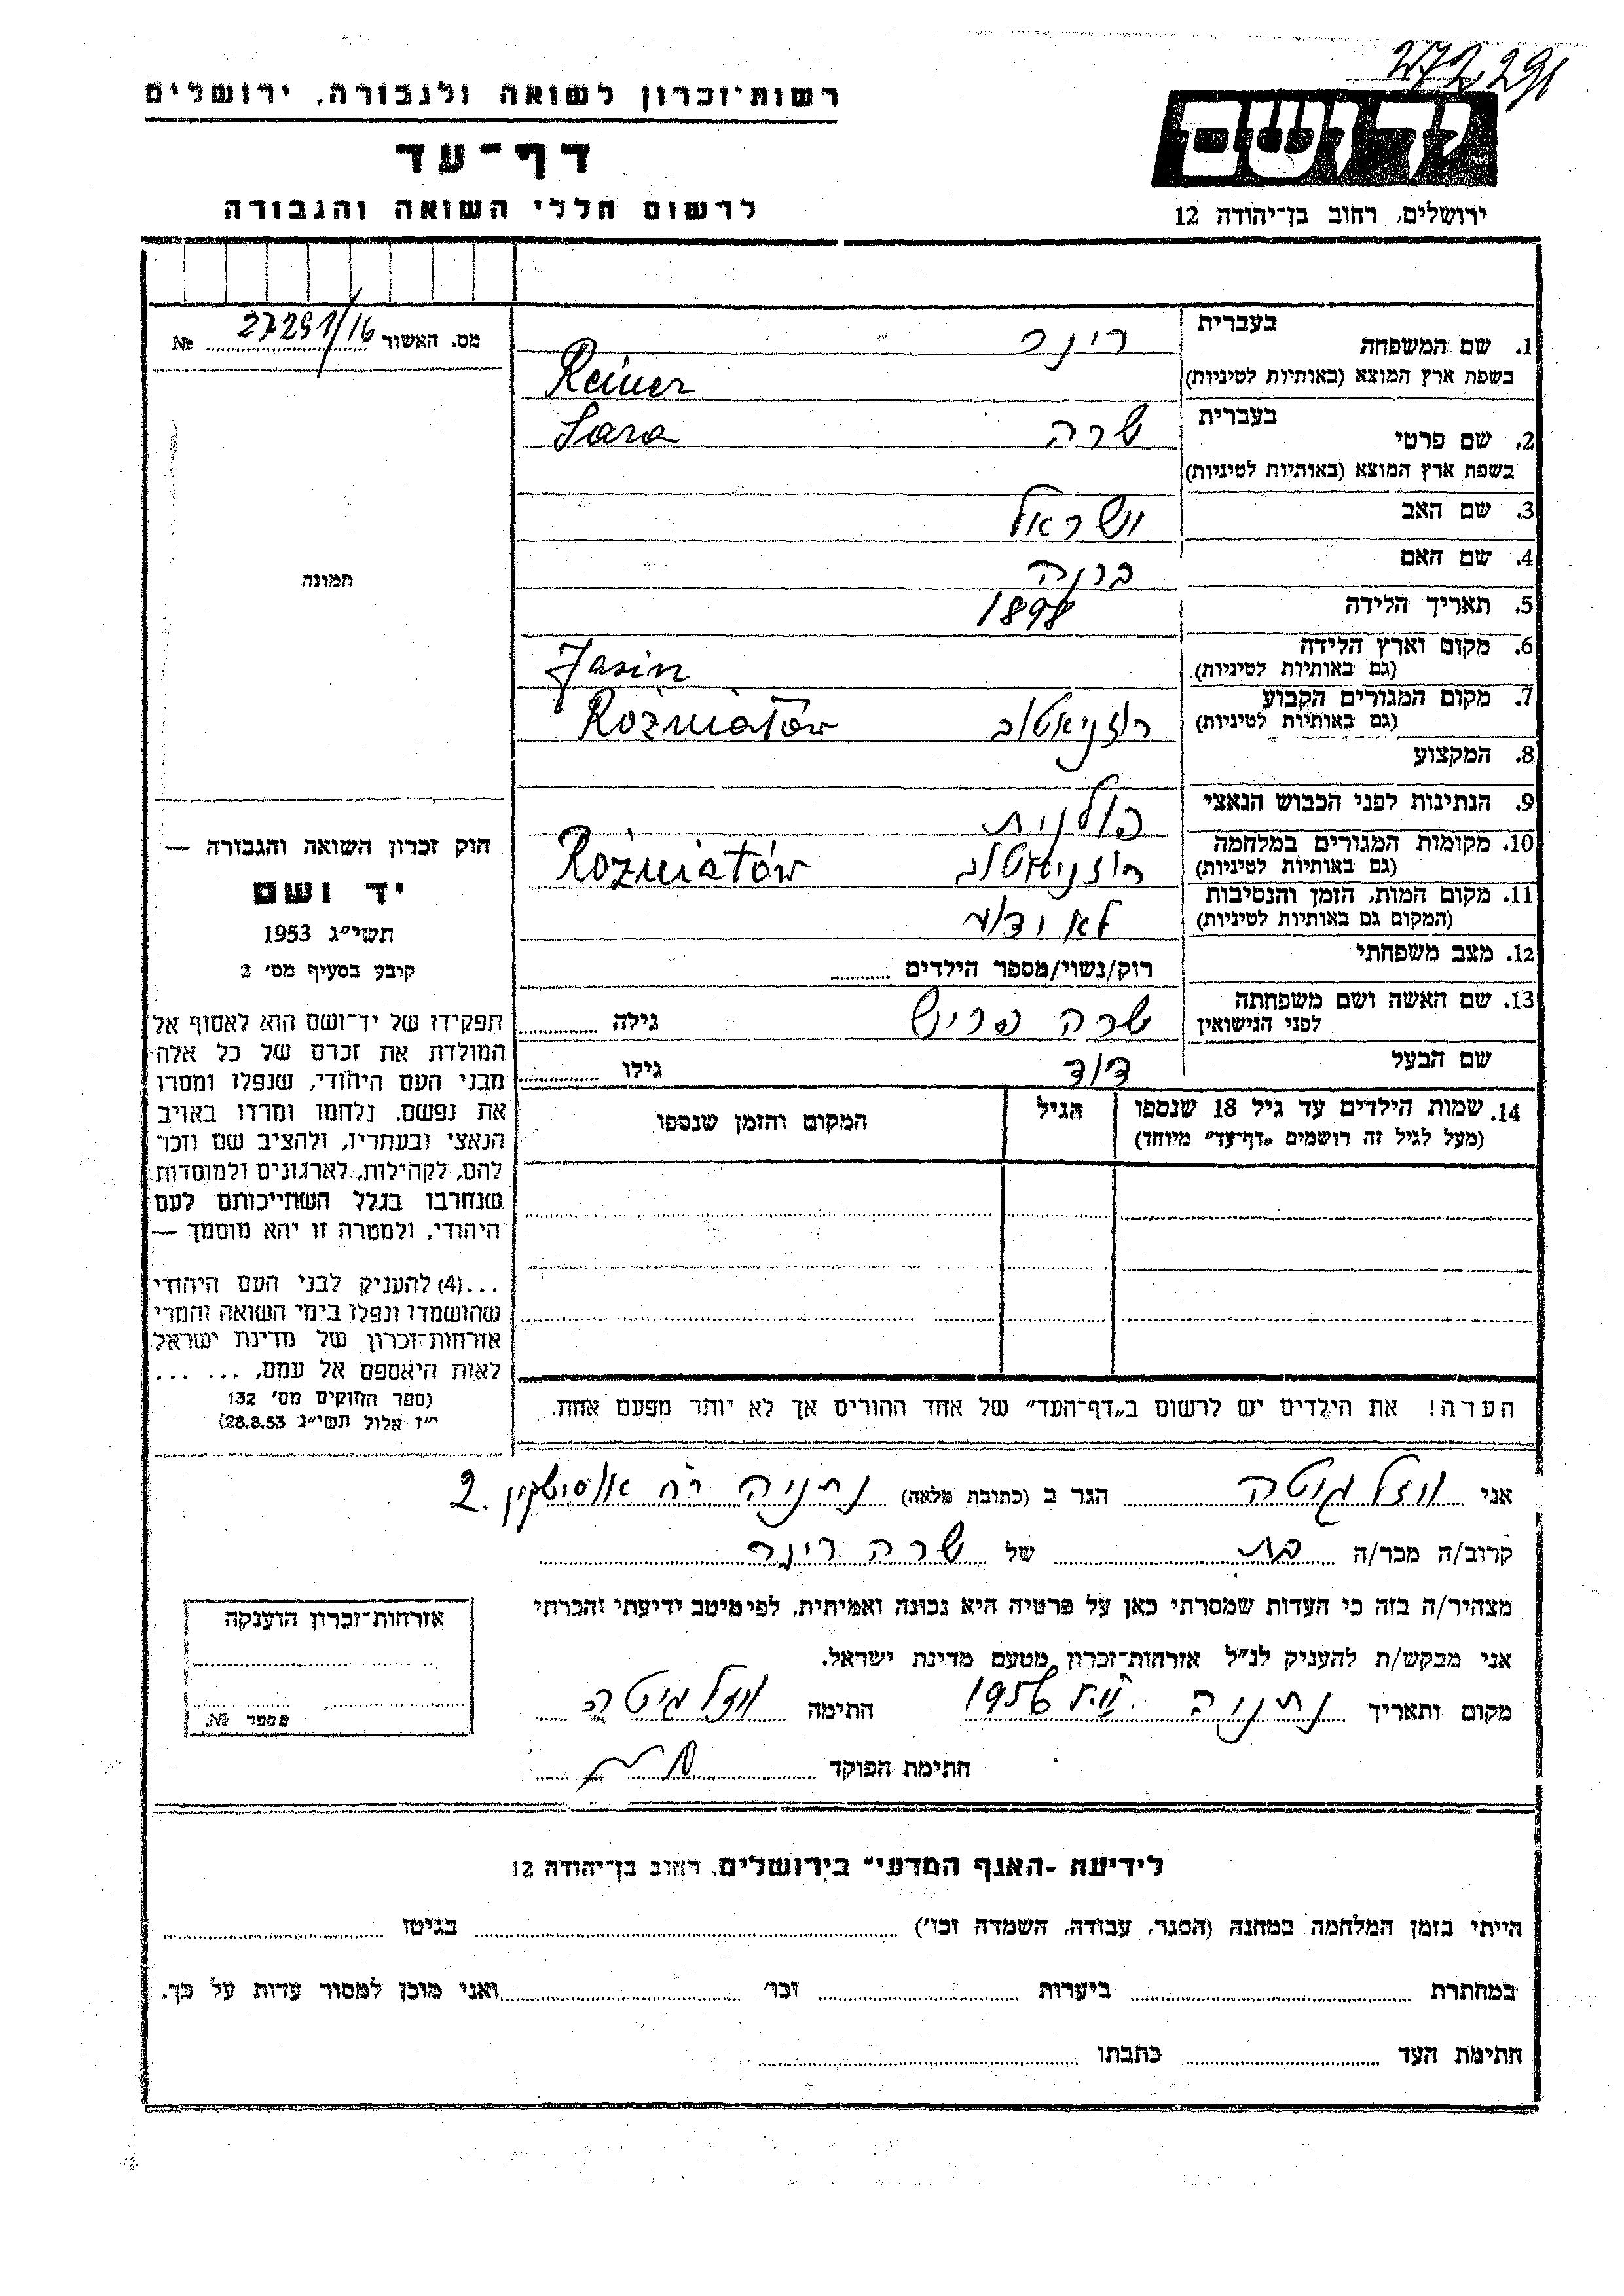 272,291
רשות־זכרון לשואה ולגבורה, ירושלים
דף־עד
לרשום חללי השואה והגבורה
יד ושם
ירושלים, רחוב בן־יהודה 12
מס. האשור 27291/16 №
תמונה
חוק זכרון השואה והגבורה —
יד ושם
תשי״ג 1953
קובע בסעיף מס׳ 2
תפקידו של יד־ושם הוא לאסוף אל
המולדת את זכרם של כל אלה
מבני העם היהודי, שנפלו ומסרו
את נפשם, נלחמו ומרדו באויב
הנאצי ובעוזריו, ולהציב שם וזכר
להם, לקהילות, לארגונים ולמוסדות
שנחרבו בגלל השתייכותם לעם
היהודי, ולמטרה זו יהא מוסמך —
...(4) להעניק לבני העם היהודי
שהושמדו ונפלו בימי השואה והמרי
אזרחות־זכרון של מדינת ישראל
לאות היאספם אל עמם, ... ...
(ספר החוקים מס׳ 132
י״ז אלול תשי״ג 28.8.53)
1. שם המשפחה בעברית רינר
בשפת ארץ המוצא (באותיות לטיניות) Reiner
2. שם פרטי בעברית שרה Sara
בשפת ארץ המוצא (באותיות לטיניות)
3. שם האב ישראל
4. שם האם
5. תאריך הלידה 1898
6. מקום וארץ הלידה
(גם באותיות לטיניות) Jasin
7. מקום המגורים הקבוע
(גם באותיות לטיניות) רוזניאטוב Rożniatów
8. המקצוע
9. הנתינות לפני הכבוש הנאצי פולנית
10. מקומות המגורים במלחמה
(גם באותיות לטיניות) רוזניאטוב Rożniatów
11. מקום המות, הזמן והנסיבות
(המקום גם באותיות לטיניות) לא ידוע
12. מצב משפחתי רוק/נשוי/מספר הילדים
13. שם האשה ושם משפחתה
לפני הנישואין שרה פריש גילה
שם הבעל דוד גילו
14. שמות הילדים עד גיל 18 שנספו הגיל המקום והזמן שנספו
(מעל לגיל זה רושמים „דף־עד״ מיוחד)
הערה! את הילדים יש לרשום ב„דף־העד״ של אחד ההורים אך לא יותר מפעם אחת.
אני ווזל גיטה הגר ב (כתובת מלאה) נתניה רח אוסישקין 2.
קרוב/ה מכר/ה בת של שרה רינר
מצהיר/ה בזה כי העדות שמסרתי כאן על פרטיה היא נכונה ואמיתית, לפי מיטב ידיעתי והכרתי
אני מבקש/ת להעניק לנ״ל אזרחות־זכרון מטעם מדינת ישראל.
מקום ותאריך נתניה 1956 חתימה ווזל גיטה
חתימת הפוקד
אזרחות־זכרון הוענקה
מספר №
לידיעת „האגף המדעי״ בירושלים, רחוב בן־יהודה 12
הייתי בזמן המלחמה במחנה (הסגר, עבודה, השמדה וכו׳) בגיטו
במחתרת ביערות וכו׳ ואני מוכן למסור עדות על כך.
חתימת העד כתבתו